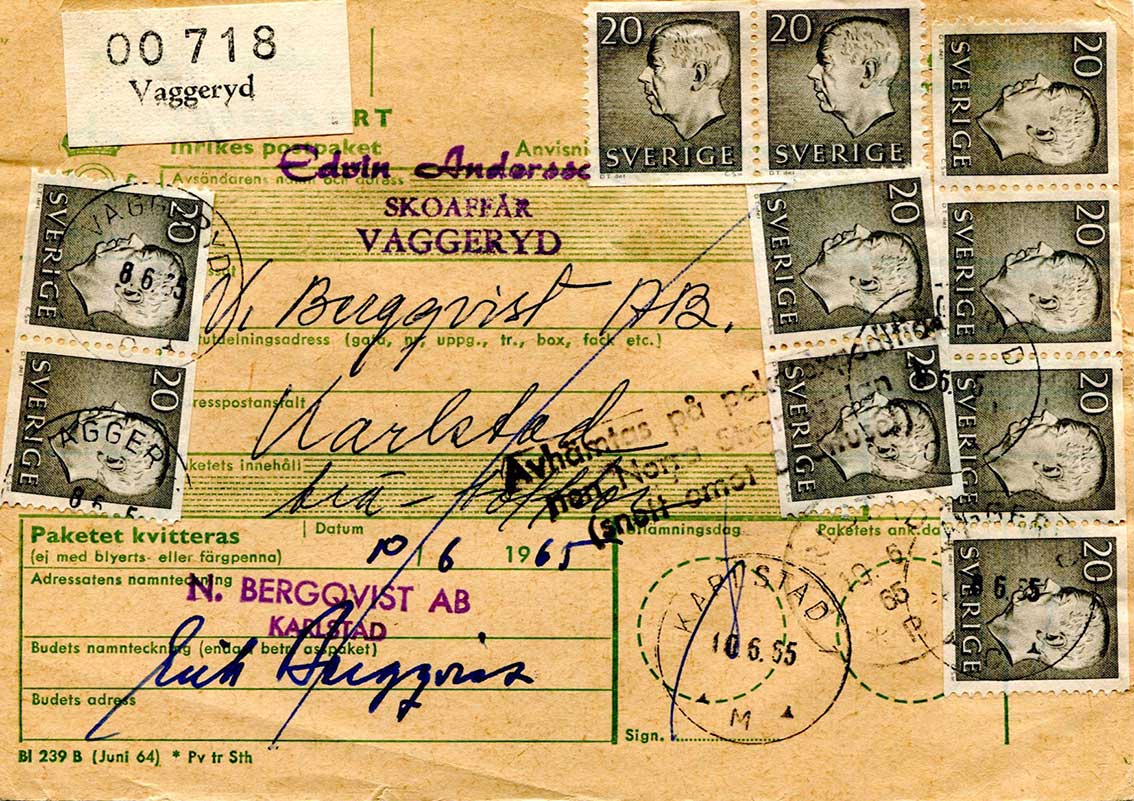 00 718
Vaggeryd
RT
Inrikes postpaket
Anvisni
Edvin Andersso
Avsändarens namn och adress
SKOAFFÄR
VAGGERYD
20
SVERIGE
20
SVERIGE
20
SVERIGE
20
SVERIGE
20
SVERIGE
20
SVERIGE
20
SVERIGE
20
SVERIGE
20
SVERIGE
20
SVERIGE
VAGGERYD
8.6.65
N. Bergqvist AB.
utdelningsadress (gata, nr, uppg., tr., box, fack etc.)
resspostanstalt
Karlstad
Avhämtas på
ketets innehåll
Norra
(snett emot
VAGGER
8.6.5
Paketet kvitteras
(ej med blyerts- eller färgpenna)
Datum
10 6 1965
Paketets ank.dag
Adressatens namnteckning
N. BERGQVIST AB
KARLSTAD
Budets namnteckning (endast betr. asspaket)
Bergqvist
Budets adress
KARLSTAD
10.6.65
M
Sign.
Bl 239 B (Juni 64) * Pv tr Sth